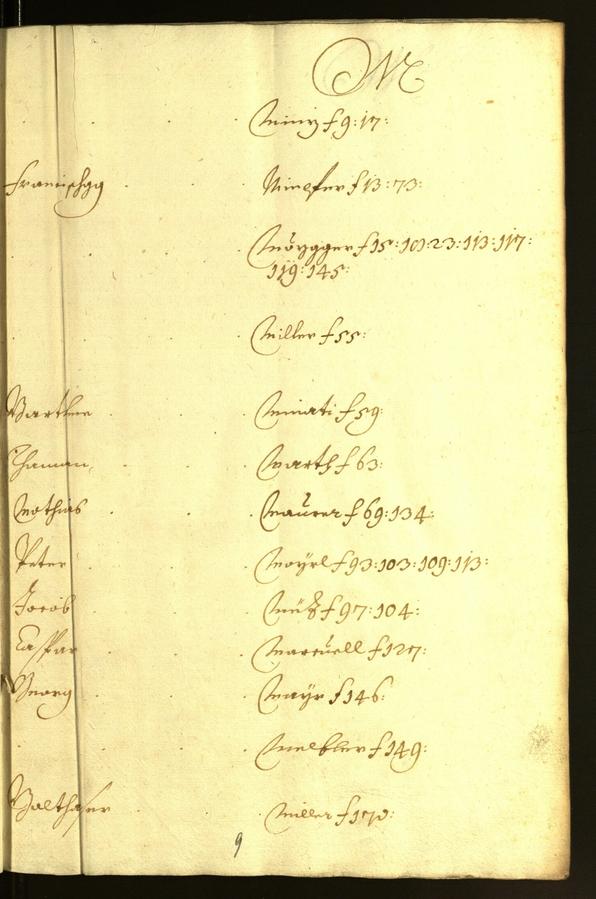 M
Miny f 9: 17:
Francischgg Mielser f 13: 73:
Möygger f 15: 101: 23: 113: 117:
119: 145:
Miller f 55:
Bartlme Minati f 59:
Thaman Marth f 63:
Mathias Maurer f 69: 134:
Peter Mayrl f 93: 103: 109: 113:
Jacob f 97: 104:
Caspar Marcuell f 127:
Georg Mayr f 146:
f 149:
Balthaser Miller
9